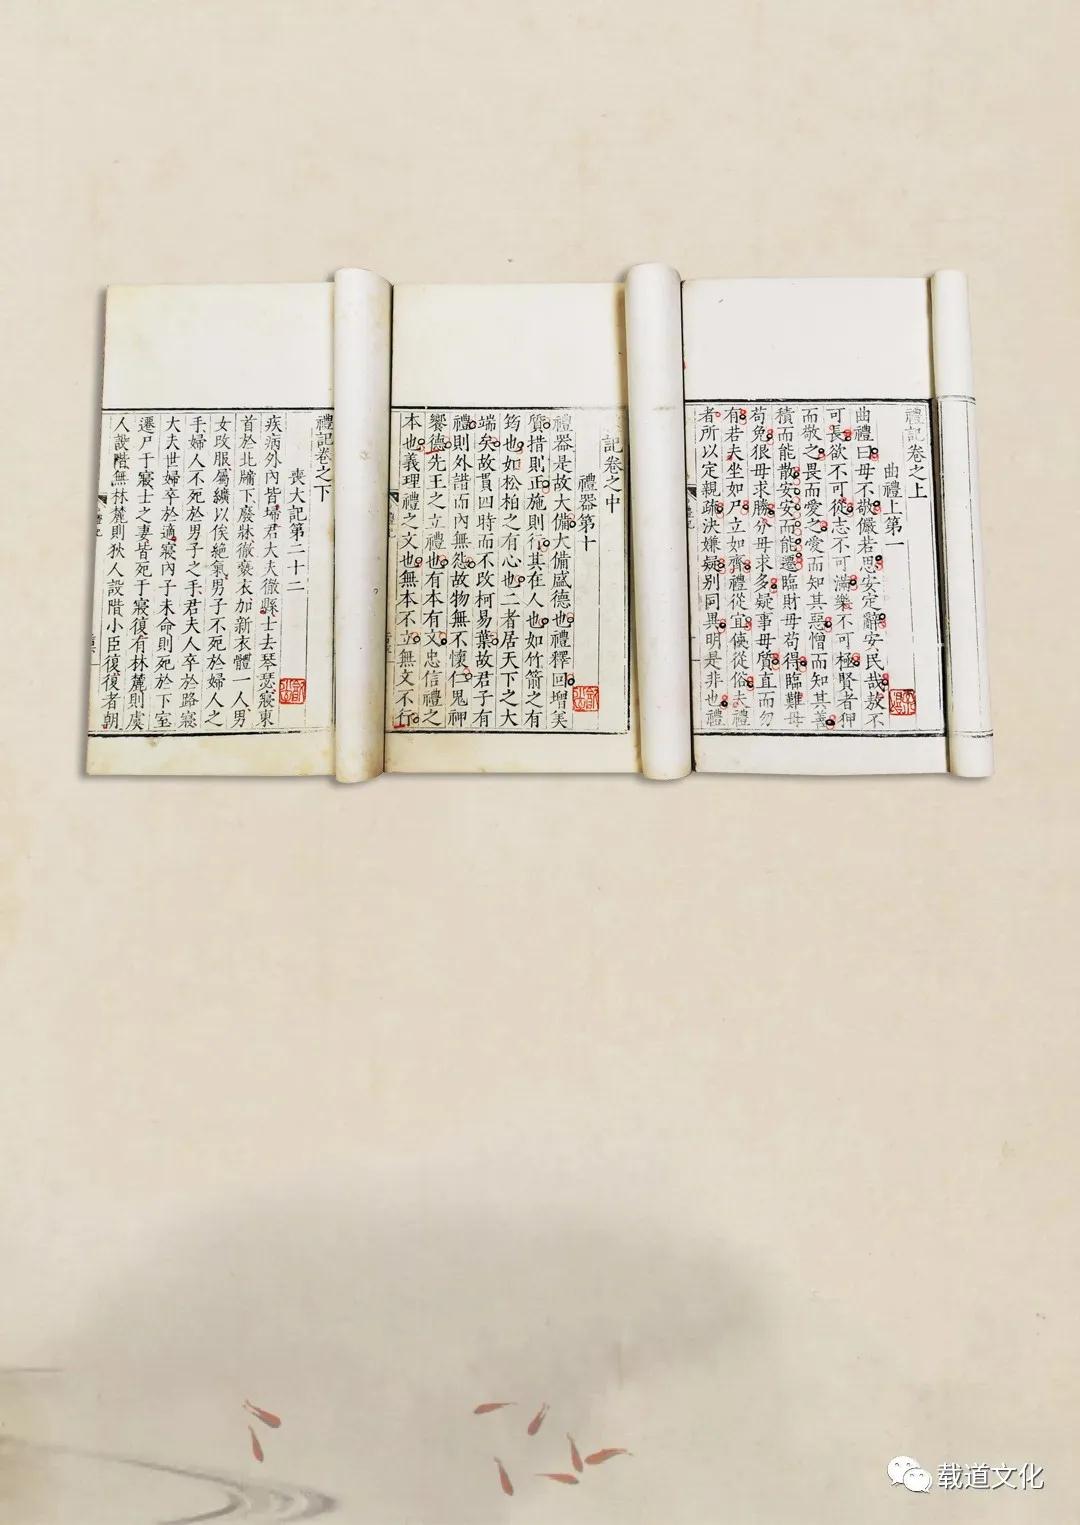 禮記卷之上
曲禮上第一
曲禮曰毋不敬儼若思安定辭安民哉敖不
可長欲不可從志不可滿樂不可極賢者狎
而敬之畏而愛之愛而知其惡憎而知其善
積而能散安安而能遷臨財毋苟得臨難毋
苟免狠毋求勝分毋求多疑事毋質直而勿
有若夫坐如尸立如齊禮從宜使從俗夫禮
者所以定親疏決嫌疑別同異明是非也禮
記卷之中
禮器第十
禮器是故大備大備盛德也禮釋回增美
質措則正施則行其在人也如竹箭之有
筠也如松柏之有心也二者居天下之大
端矣故貫四時而不改柯易葉故君子有
禮則外諧而內無怨故物無不懷仁鬼神
饗德先王之立禮也有本有文忠信禮之
本也義理禮之文也無本不立無文不行
禮記卷之下
喪大記第二十二
疾病外內皆埽君大夫徹縣士去琴瑟寢東
首於北牖下廢牀徹褻衣加新衣體一人男
女改服屬纊以俟絕氣男子不死於婦人之
手婦人不死於男子之手君夫人卒於路寢
大夫世婦卒於適寢內子未命則死於下室
遷尸于寢士之妻皆死于寢復有林麓則虞
人設階無林麓則狄人設階小臣復復者朝
载道文化